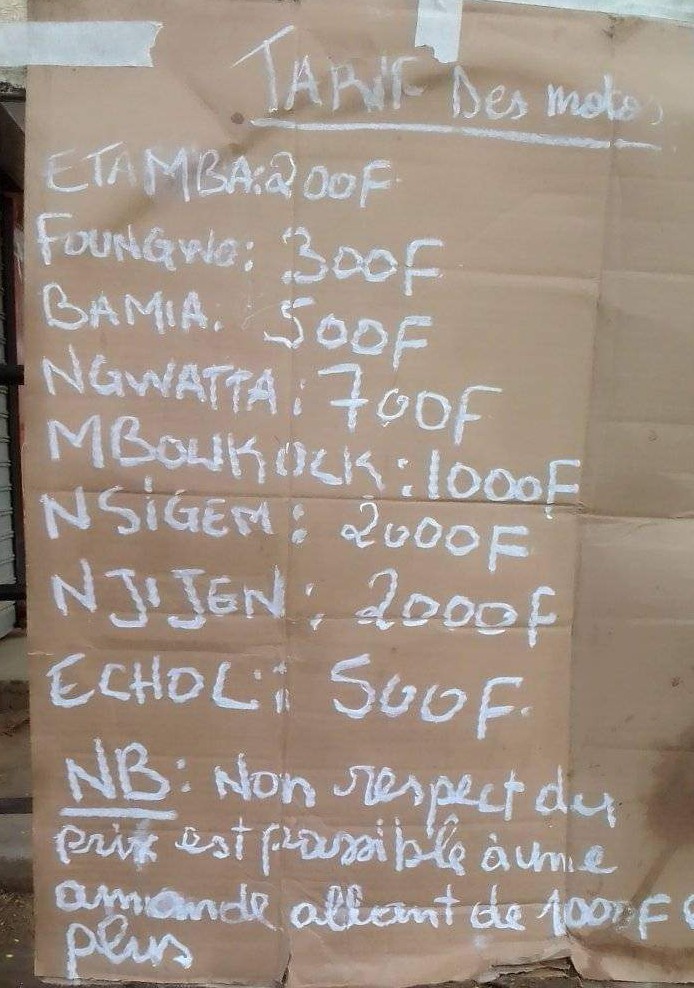 TARIF Des motos
ETAMBA: 200F
FOUNGWO: 300F
BAMIA. 500F
NGWATTA: 700F
MBOUKOCK: 1000F
NSIGEM: 2000F
NJIJEN: 2000F
ECHOL: 500F.
NB: Non respect du
prix est passible à une
amande allant de 1000F
plus